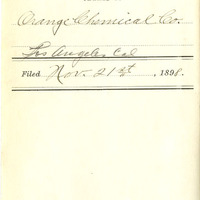 Orange Chemical Co.
Los Angeles, Cal
Filed Nov. 21st, 1898.